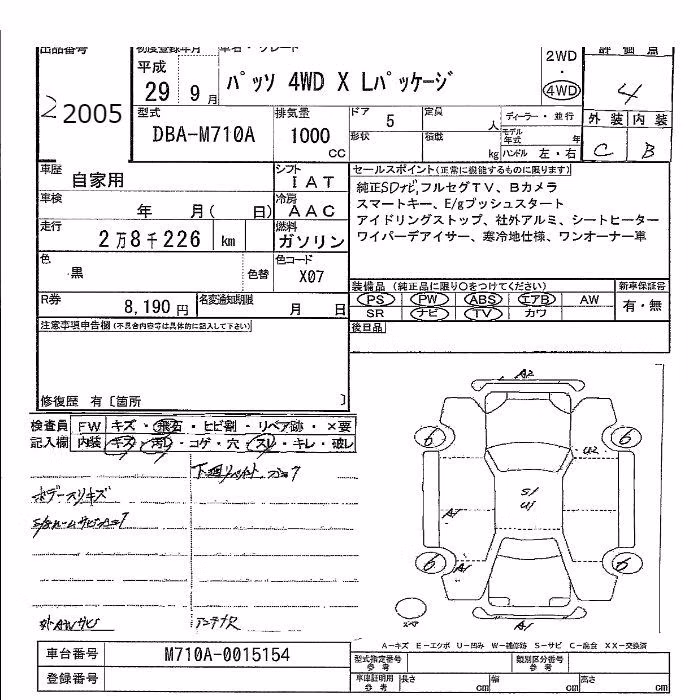 出品番号
初度登録年月
車名・グレード
2WD
・
4WD
評価点
平成
29 9月
パッソ 4WD X Lパッケージ
4
2 2005
型式
DBA-M710A
排気量
1000
CC
ドア 5
定員 人
ディーラー・並行
形状
積載 kg
モデル年式 年
ハンドル 左・右
外装 内装
C B
車歴
自家用
シフト
IAT
セールスポイント(正常に機能するものに限ります)
純正SDナビ,フルセグTV、Bカメラ
スマートキー、E/gプッシュスタート
アイドリングストップ、社外アルミ、シートヒーター
ワイパーデアイサー、寒冷地仕様、ワンオーナー車
車検
年 月( 日)
冷房
AAC
走行
2万8千226 km
燃料
ガソリン
色
黒
色替
色コード
X07
装備品 (純正品に限り○をつけてください)
新車保証書
PS PW ABS エアB AW
SR ナビ TV カワ
有・無
R券
8,190円
名変通知期限
月 日
後日品
注意事項申告欄(不具合内容等は具体的に記入して下さい)
修復歴 有〔箇所 〕
検査員
記入欄
FW キズ・飛石・ヒビ割・リペア跡・×要
内装 キズ・汚レ・コゲ・穴・スレ・キレ・破レ
ボデースリキズ
外AWサビ
アンテナ欠
A2
6
6
U2
S1
U1
A1
A1
6
6
A1
A-キズ E-エクボ U-凹み W-補修跡 S-サビ C-腐食 XX-交換済
車台番号
M710A-0015154
登録番号
型式指定番号
参考
類別区分番号
参考
車庫証明用
参考
長さ cm
幅 cm
高さ cm